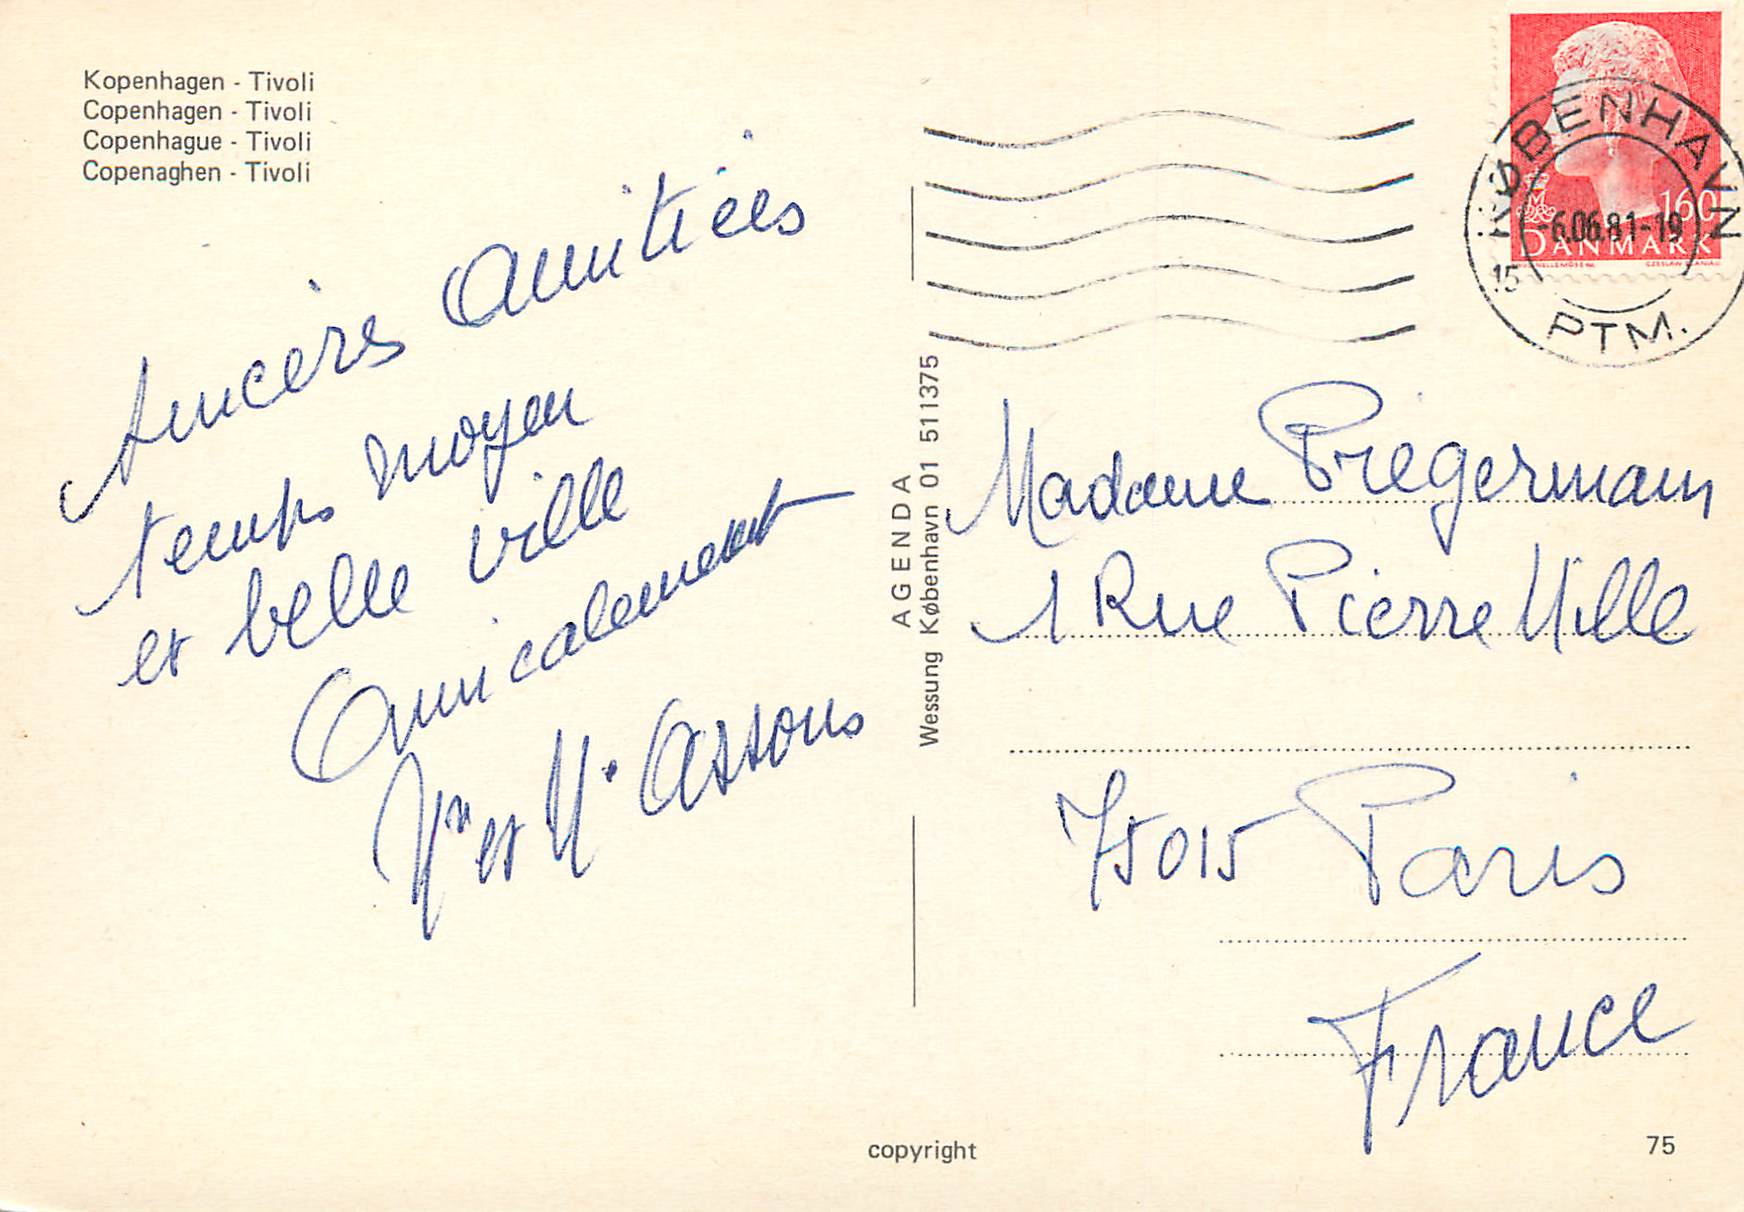 Kopenhagen - Tivoli
Copenhagen - Tivoli
Copenhague - Tivoli
Copenaghen - Tivoli
Sincères amitiées
temps moyen
et belle ville
Amicalement
Mr et M. Assous
AGENDA
Wessung København 01 511375
160
DANMARK
KØBENHAVN
-6.06.81-19
15
PTM.
Madame Priegermam
1 Rue Pierre Mille
75015 Paris
France
copyright
75